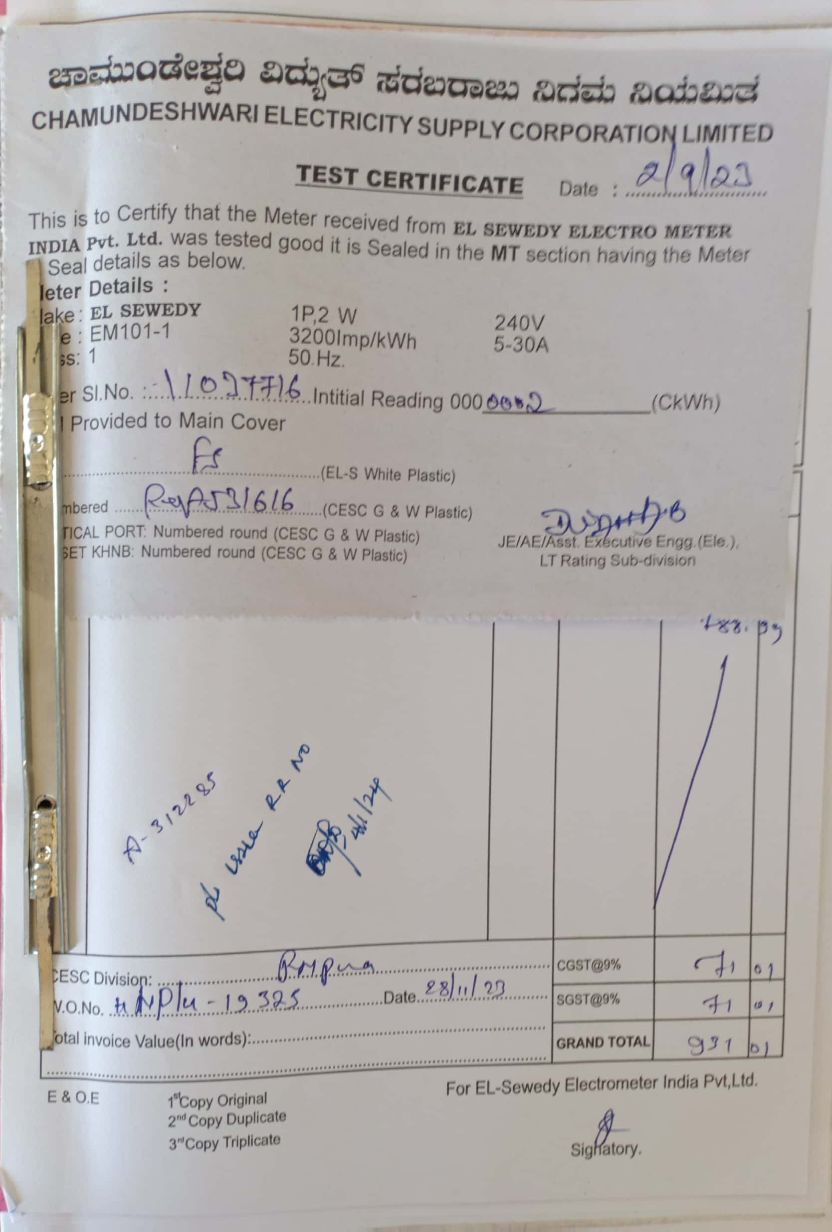 ಚಾಮುಂಡೇಶ್ವರಿ ವಿದ್ಯುತ್ ಸರಬರಾಜು ನಿಗಮ ನಿಯಮಿತ
CHAMUNDESHWARI ELECTRICITY SUPPLY CORPORATION LIMITED
TEST CERTIFICATE Date : 2/9/23
This is to Certify that the Meter received from EL SEWEDY ELECTRO METER
INDIA Pvt. Ltd. was tested good it is Sealed in the MT section having the Meter
Seal details as below.
eter Details :
ake : EL SEWEDY 1P,2 W 240V
e : EM101-1 3200Imp/kWh 5-30A
ss: 1 50.Hz.
er Sl.No. : 11027716 Intitial Reading 000 0002 (CkWh)
Provided to Main Cover
(EL-S White Plastic)
mbered (CESC G & W Plastic)
TICAL PORT: Numbered round (CESC G & W Plastic)
SET KHNB: Numbered round (CESC G & W Plastic)
JE/AE/Asst. Executive Engg.(Ele.),
LT Rating Sub-division
788.99
A-312285
RR NO
4/1/24
CESC Division: CGST@9% 71 01
W.O.No. 19325 Date 28/11/23 SGST@9% 71 01
otal invoice Value(In words): GRAND TOTAL 931 01
E & O.E
1st Copy Original
2nd Copy Duplicate
3rd Copy Triplicate
For EL-Sewedy Electrometer India Pvt,Ltd.
Signatory.